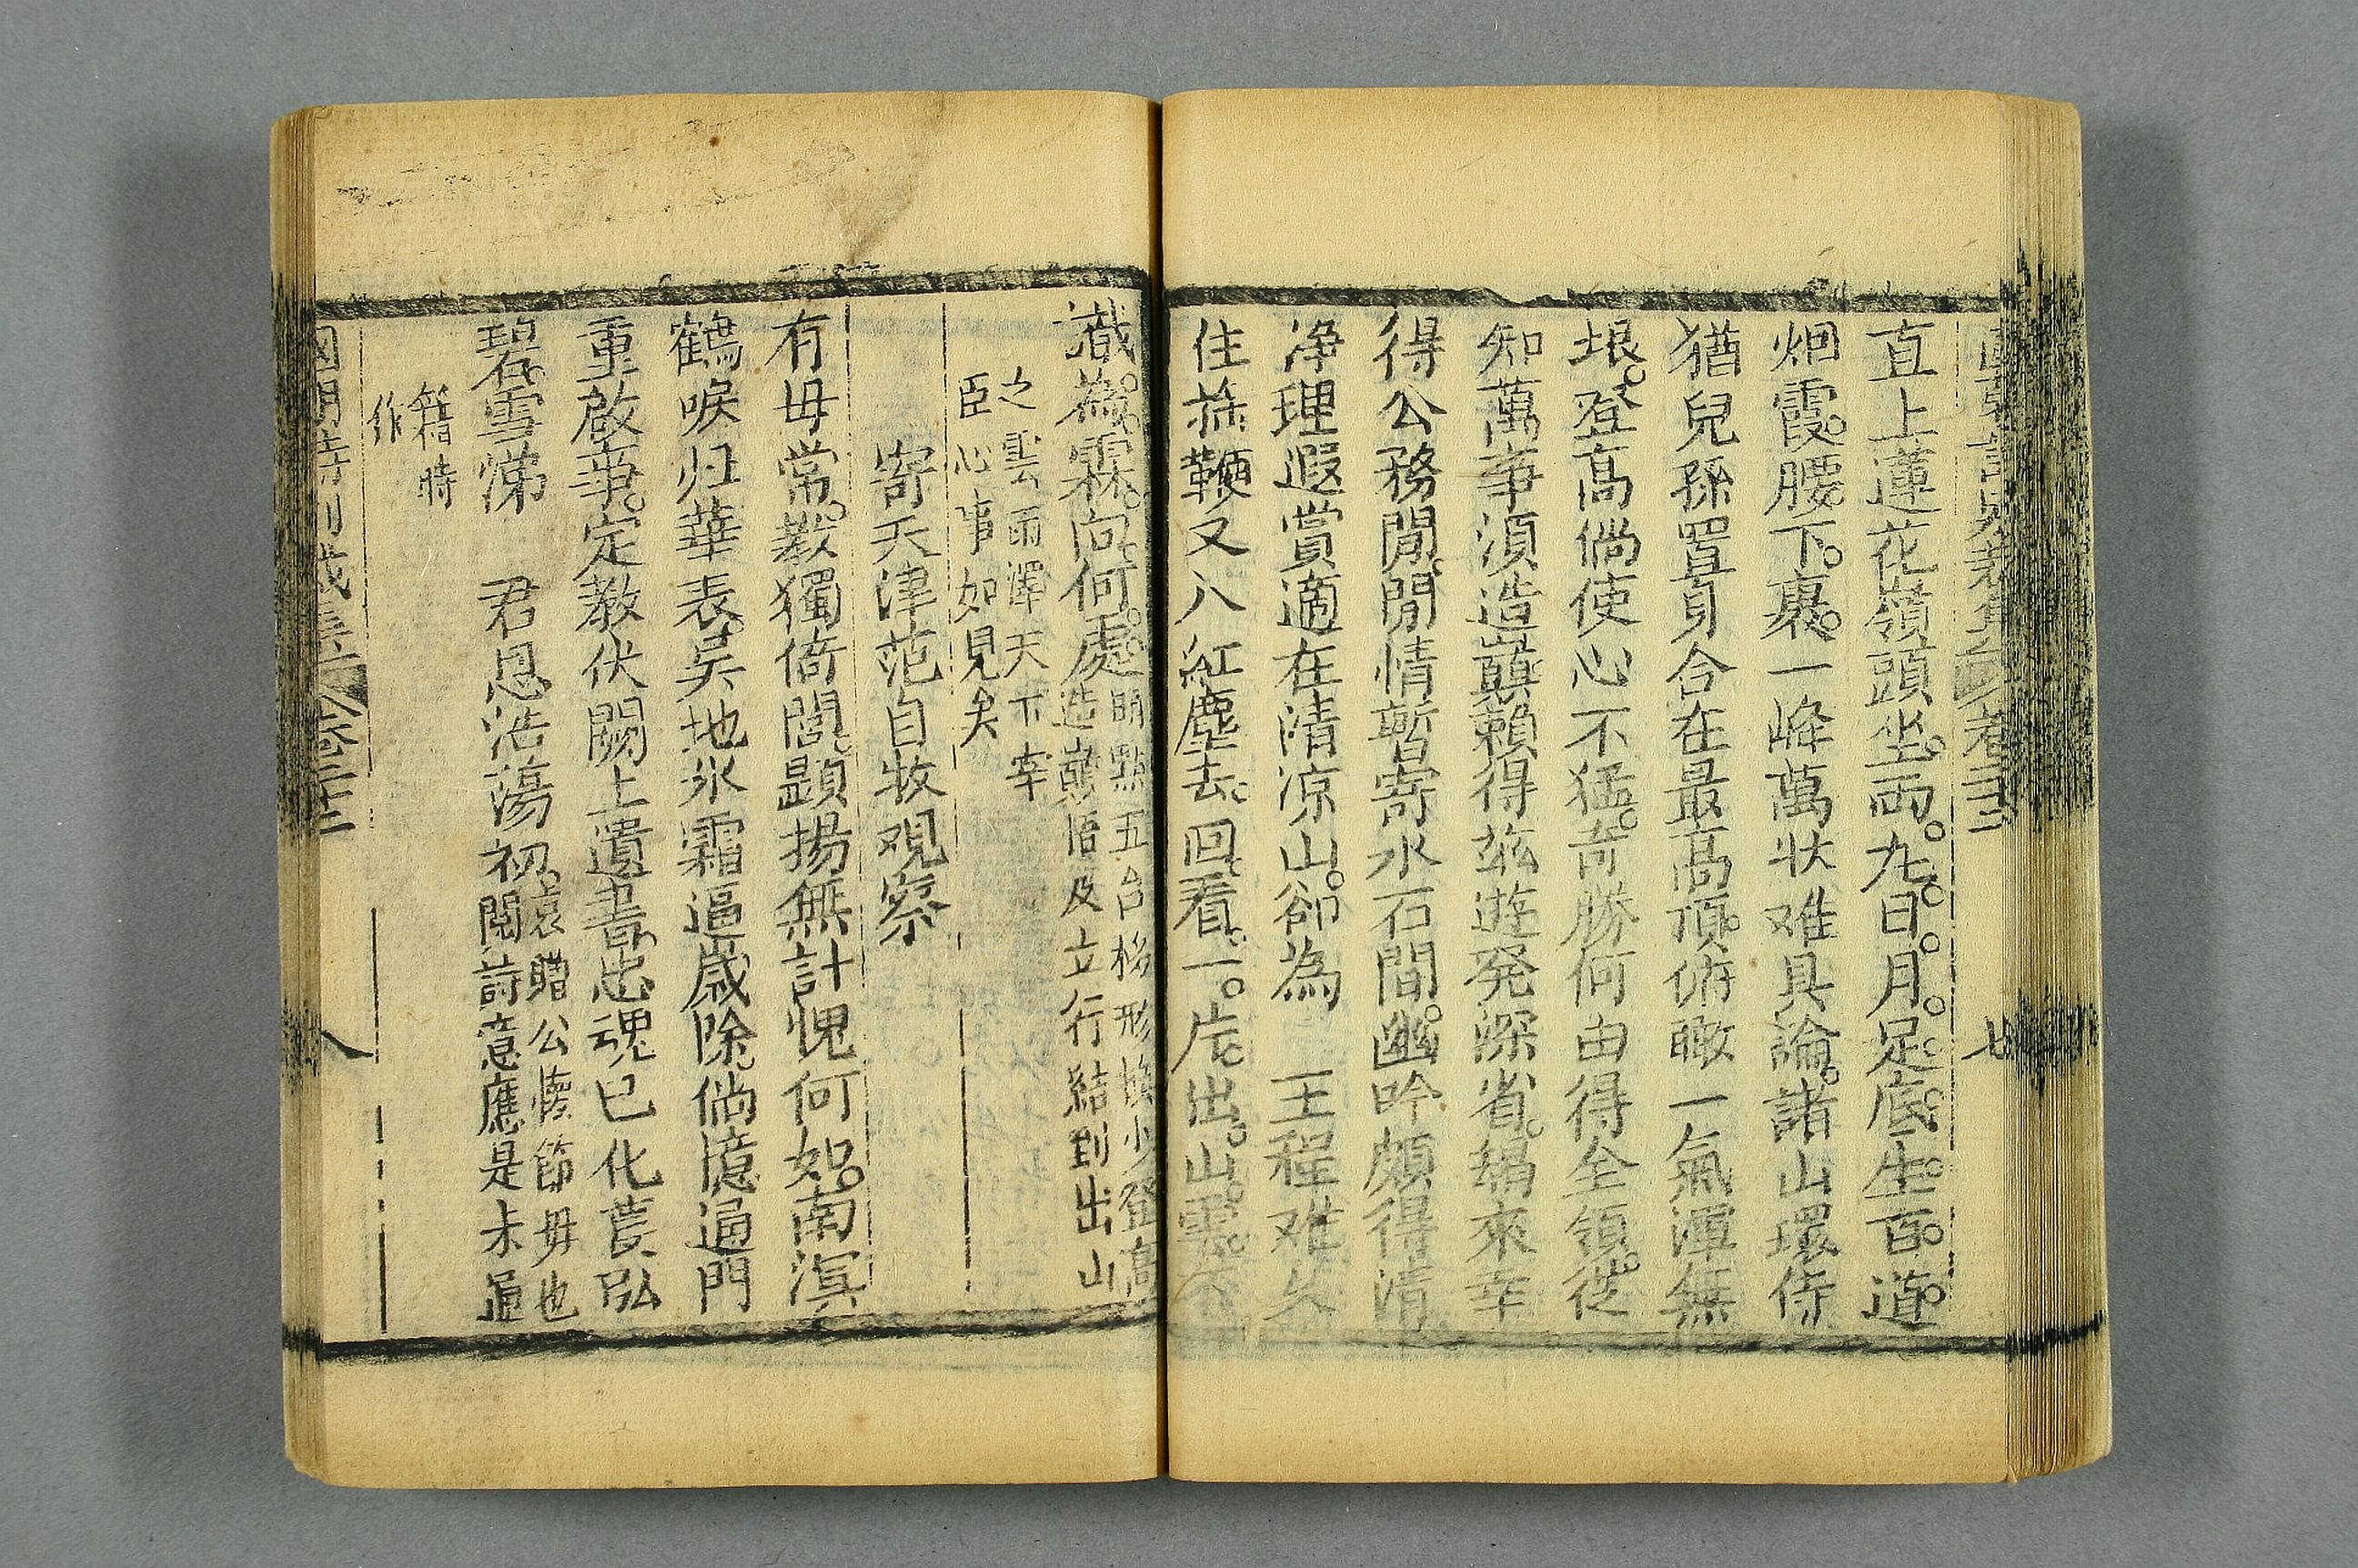 直上蓮花嶺頭坐兩丸日月足底生百道
烟霞腰下裹一峰萬状难具論諸山環侍
猶兒孫置身合在最高頂俯瞰一氣渾無
垠登高倘使心不猛奇勝何由得全領從
知萬事須造巔賴得兹遊発深省朅來幸
得公務閒閒情暫寄水石間幽吟頗得清
净理遐賞適在清凉山卻為 王程难久
住旆鞭又入紅塵去回看一片出山雲
識為霖向何處
明點五台移形換步登高
造巔悟及立行結到出山
之雲雨澤天下宰
臣心事如見矣
寄天津范自牧观察
有毋常教獨倚閭顕揚無計愧何如南溟
鶴唳归華表吴地氷霜逼歳除倘憶逼門
重啟事定教伏闕上遺書忠魂已化萇弘
碧雪涕 君恩浩蕩初
袁贈公懐節毋也
閲詩意應是未通
籍時
作
國朝詩別裁集 卷三十二
八